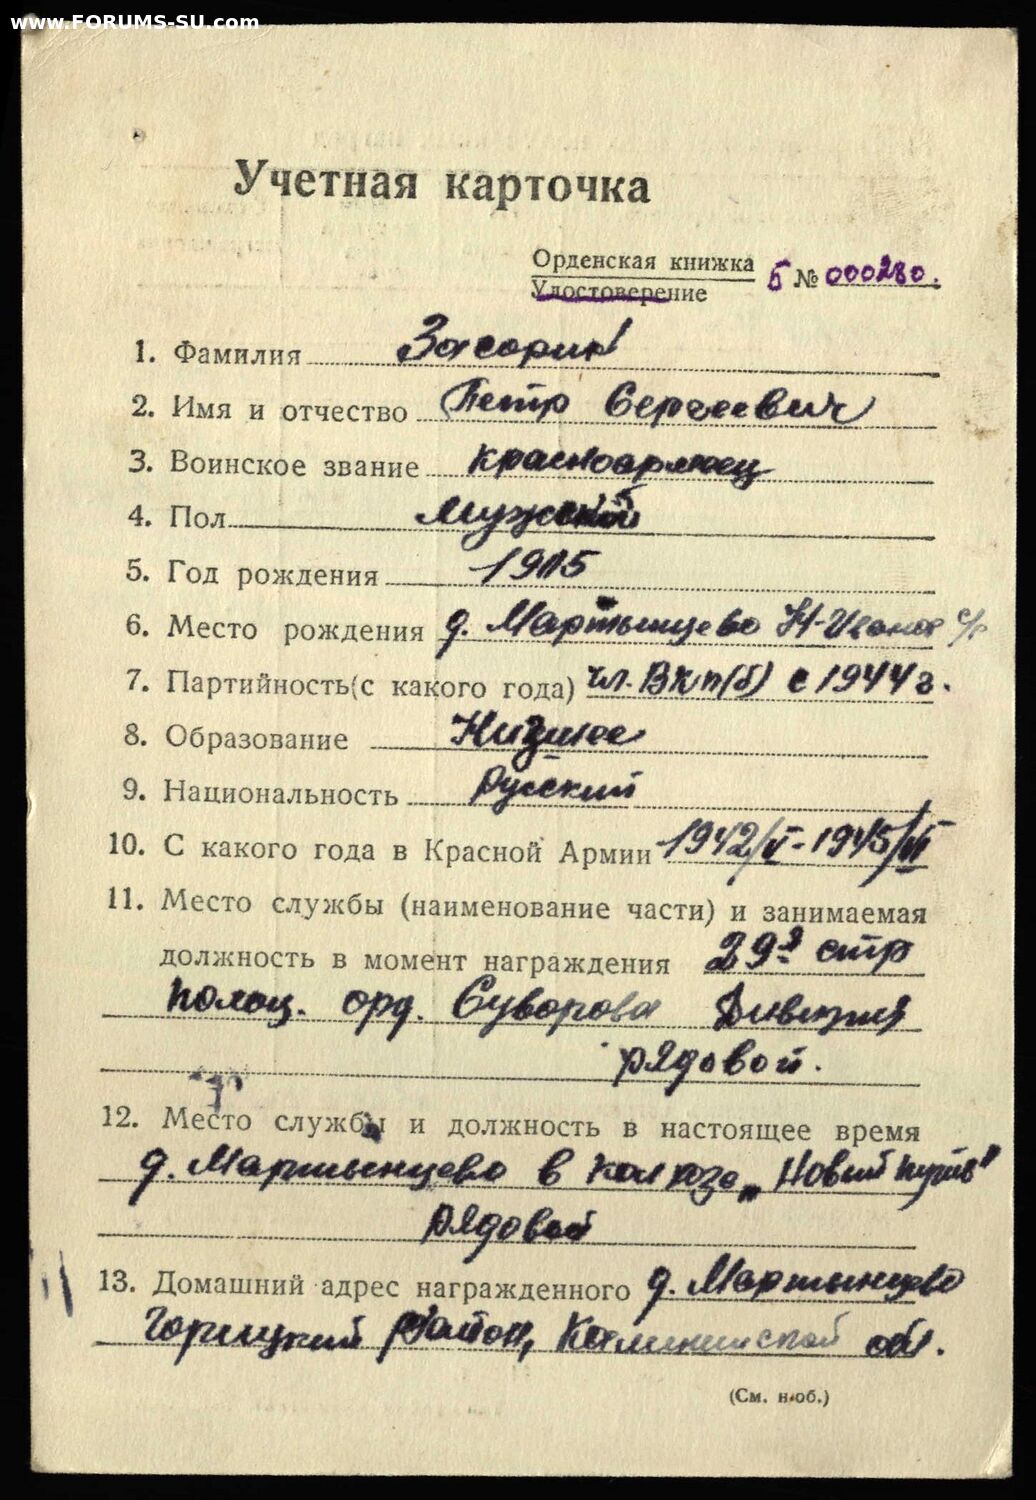 www.FORUMS-SU.com
Учетная карточка
Орденская книжка Б № 000280.
Удостоверение
1. Фамилия Засорин
2. Имя и отчество Петр Сергеевич
3. Воинское звание красноармеец
4. Пол мужской
5. Год рождения
6. Место рождения д. Мартынцево
7. Партийность(с какого года) чл. ВКП(б) с 1944 г.
8. Образование Низшее
9. Национальность русский
10. С какого года в Красной Армии 1942/V-1945/
11. Место службы (наименование части) и занимаемая
должность в момент награждения стр
полоц. орд. Суворова Дивизия
рядовой.
12. Место службы и должность в настоящее время
д. Мартынцево в колхозе „Новый путь"
рядовой
13. Домашний адрес награжденного д. Мартынцево
Горицкий район, Калининской обл.
(См. н.об.)